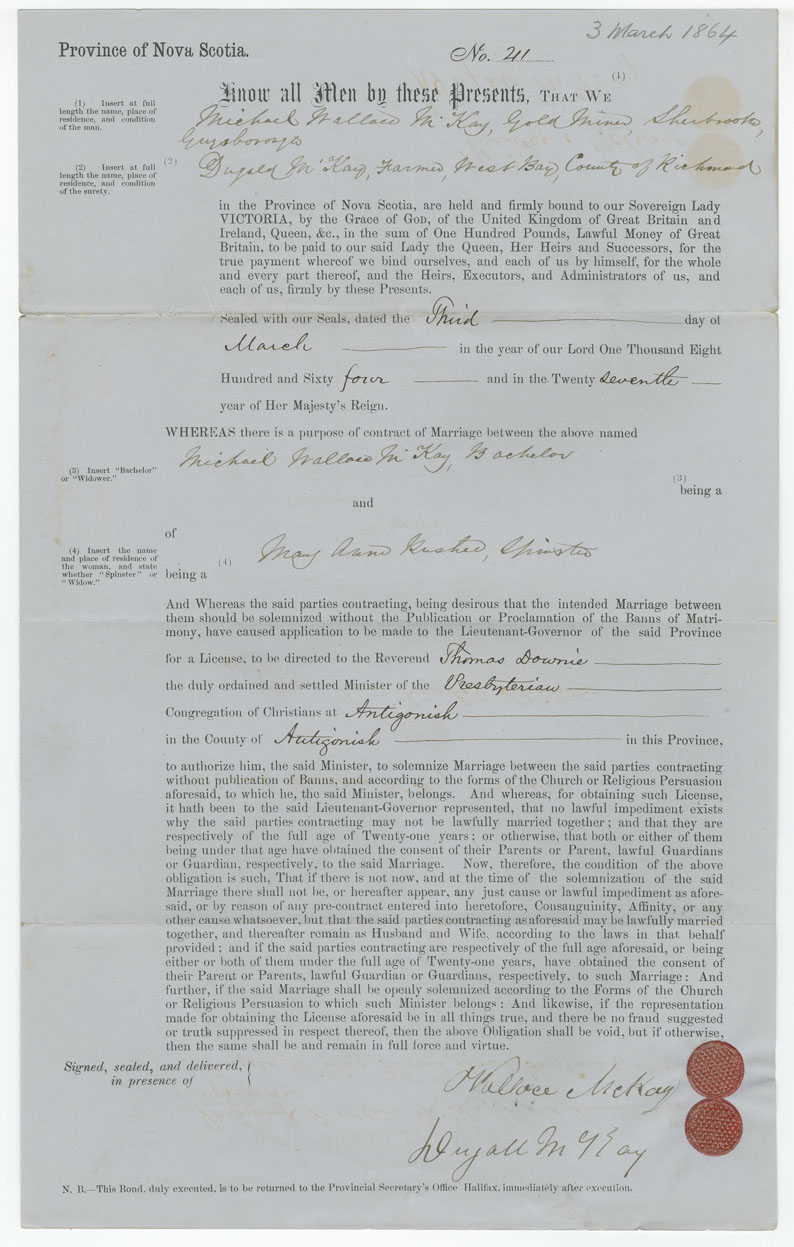 3 March 1864
Province of Nova Scotia.
No. 211
Know all Men by these Presents, THAT WE (1)
(1) Insert at full
length the name, place of
residence, and condition
of the man.
Michael Wallace McKay, Gold Miner, Sherbrooke,
Guysborough
(2) Insert at full
length the name, place of
residence, and condition
of the surety.
(2) Dugald McKay, Farmer, West Bay, County of Richmond
in the Province of Nova Scotia, are held and firmly bound to our Sovereign Lady
VICTORIA, by the Grace of GOD, of the United Kingdom of Great Britain and
Ireland, Queen, &c., in the sum of One Hundred Pounds, Lawful Money of Great
Britain, to be paid to our said Lady the Queen, Her Heirs and Successors, for the
true payment whereof we bind ourselves, and each of us by himself, for the whole
and every part thereof, and the Heirs, Executors, and Administrators of us, and
each of us, firmly by these Presents.
Sealed with our Seals, dated the Third day of
March in the year of our Lord One Thousand Eight
Hundred and Sixty four and in the Twenty seventh
year of Her Majesty's Reign.
WHEREAS there is a purpose of contract of Marriage between the above named
Michael Wallace McKay, Bachelor
(3) Insert "Bachelor"
or "Widower."
(3)
being a
and
of
(4) Insert the name
and place of residence of
the woman, and state
whether "Spinster" or
"Widow."
(4) Mary Anne, Spinster
being a
And Whereas the said parties contracting, being desirous that the intended Marriage between
them should be solemnized without the Publication or Proclamation of the Banns of Matri-
mony, have caused application to be made to the Lieutenant-Governor of the said Province
for a License, to be directed to the Reverend Thomas Downie
the duly ordained and settled Minister of the Presbyterian
Congregation of Christians at Antigonish
in the County of Antigonish in this Province,
to authorize him, the said Minister, to solemnize Marriage between the said parties contracting
without publication of Banns, and according to the forms of the Church or Religious Persuasion
aforesaid, to which he, the said Minister, belongs. And whereas, for obtaining such License,
it hath been to the said Lieutenant-Governor represented, that no lawful impediment exists
why the said parties contracting may not be lawfully married together; and that they are
respectively of the full age of Twenty-one years; or otherwise, that both or either of them
being under that age have obtained the consent of their Parents or Parent, lawful Guardians
or Guardian, respectively, to the said Marriage. Now, therefore, the condition of the above
obligation is such, That if there is not now, and at the time of the solemnization of the said
Marriage there shall not be, or hereafter appear, any just cause or lawful impediment as afore-
said, or by reason of any pre-contract entered into heretofore, Consanguinity, Affinity, or any
other cause whatsoever, but that the said parties contracting as aforesaid may be lawfully married
together, and thereafter remain as Husband and Wife, according to the laws in that behalf
provided; and if the said parties contracting are respectively of the full age aforesaid, or being
either or both of them under the full age of Twenty-one years, have obtained the consent of
their Parent or Parents, lawful Guardian or Guardians, respectively, to such Marriage: And
further, if the said Marriage shall be openly solemnized according to the Forms of the Church
or Religious Persuasion to which such Minister belongs: And likewise, if the representation
made for obtaining the License aforesaid be in all things true, and there be no fraud suggested
or truth suppressed in respect thereof, then the above Obligation shall be void, but if otherwise,
then the same shall be and remain in full force and virtue.
Signed, sealed, and delivered,
in presence of
Wallace McKay
Dugall McKay
N. B.—This Bond, duly executed, is to be returned to the Provincial Secretary's Office Halifax, immediately after execution.